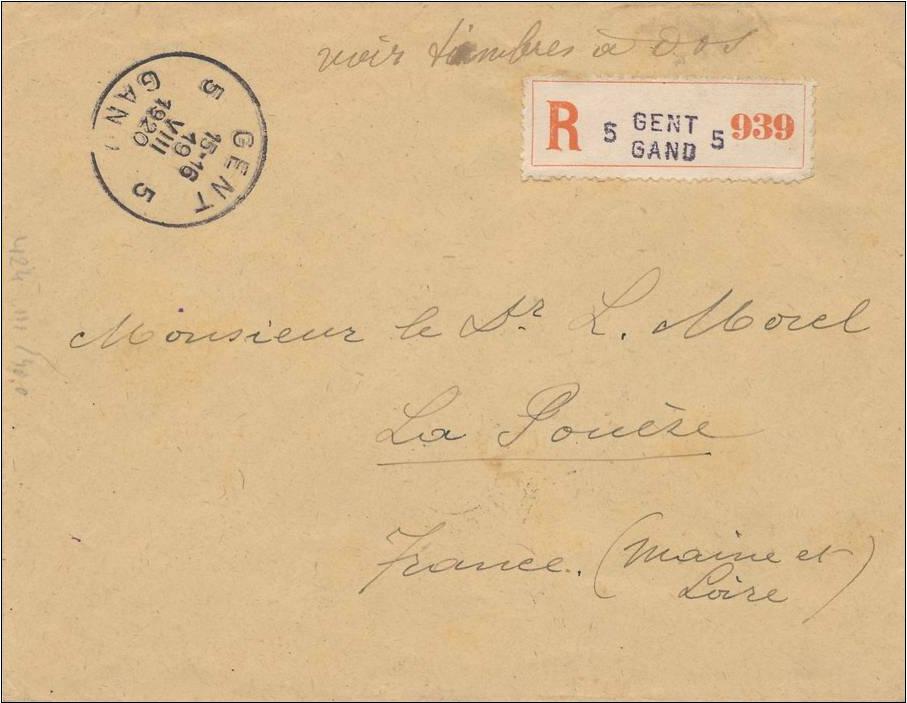 voir timbres à dos
R 5 GENT GAND 5 939
5 GENT 5 GAN
15-16
19
VIII
1920
Monsieur le Dr L. Morel
La Pouëze
France. (Maine et
Loire)